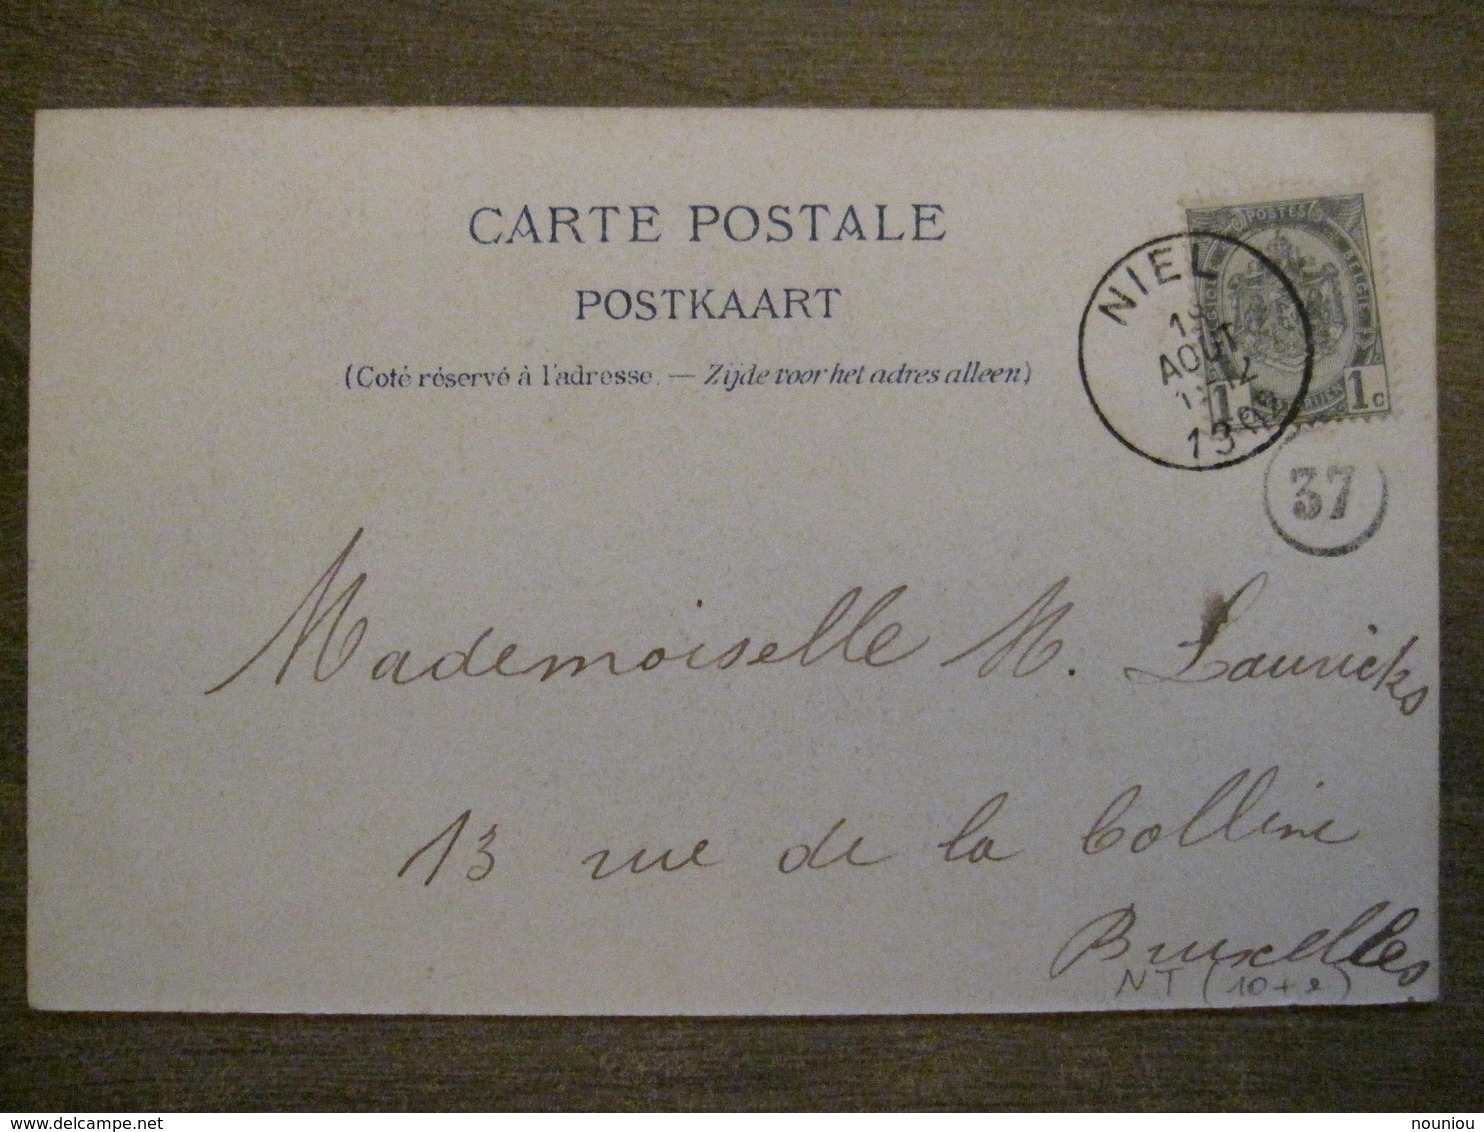 CARTE POSTALE
POSTKAART
(Coté réservé à l'adresse. — Zijde voor het adres alleen)
POSTES
NIEL
AOUT
1 1 c
37
Mademoiselle M. Lauricks
13 rue de la Colline
Bruxelles
NT (10+2)
www.delcampe.net
nouniou